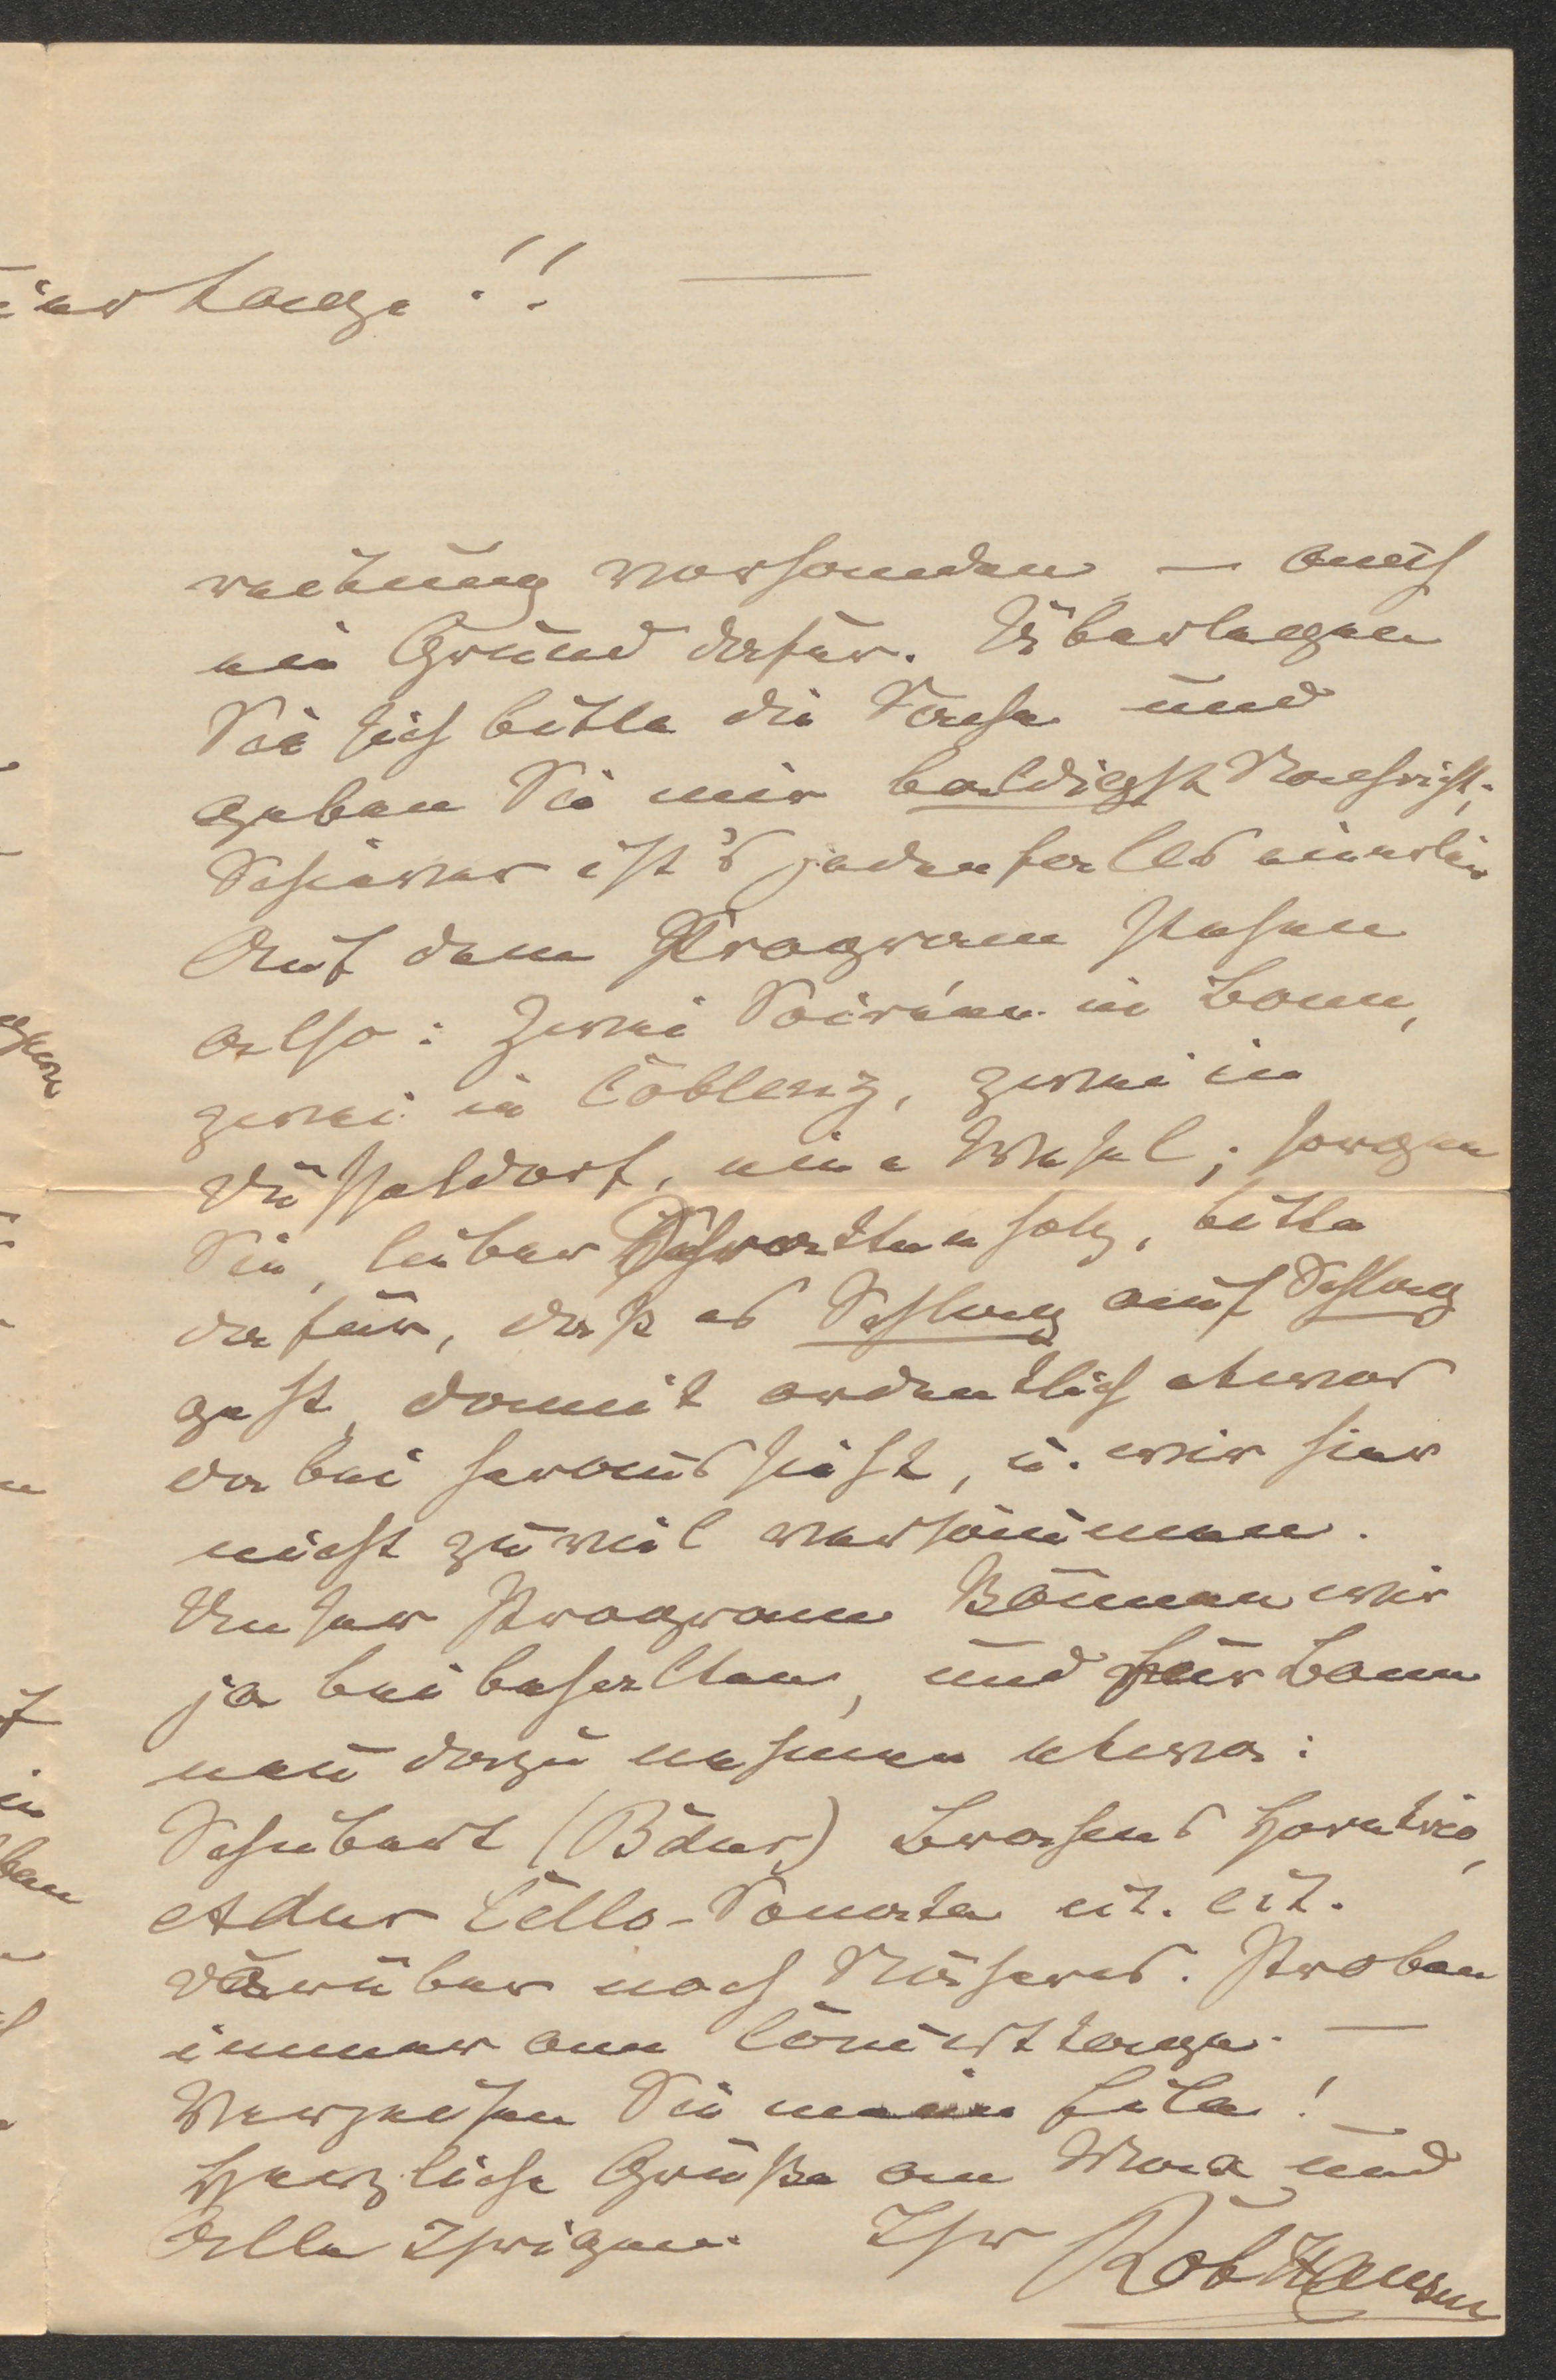 tage !! —
reitung vorhanden — auch
ein Grund dafür. Überlegen
Sie sich bitte die Sache und
geben Sie mir baldigst Nachricht;
Schöner ist's jedenfalls
Auf dem Program stehen
also: Zwei Soiréen in Bonn,
zwei in Coblenz, zwei in
Düsseldorf, eine Wesel; sorgen
Sie, lieber Schrattenholz, bitte
dafür, daß es Schlag auf Schlag
geht, damit ordentlich etwas
dabei heraussieht, u. wir hier
nicht zuviel versäumen.
Unser Program können wir
ja beibehalten, und für Bonn
neu dazu nehmen etwa:
Schubert (Bdur) Brahms Horntrio,
Adur Cello-Sonate etc. etc.
Darüber noch Näheres. Proben
immer am Concerttage. —
Verzeihen Sie meine Eile!
Herzliche Grüße an und
Alle Ihrigen. Ihr Rob Hausm